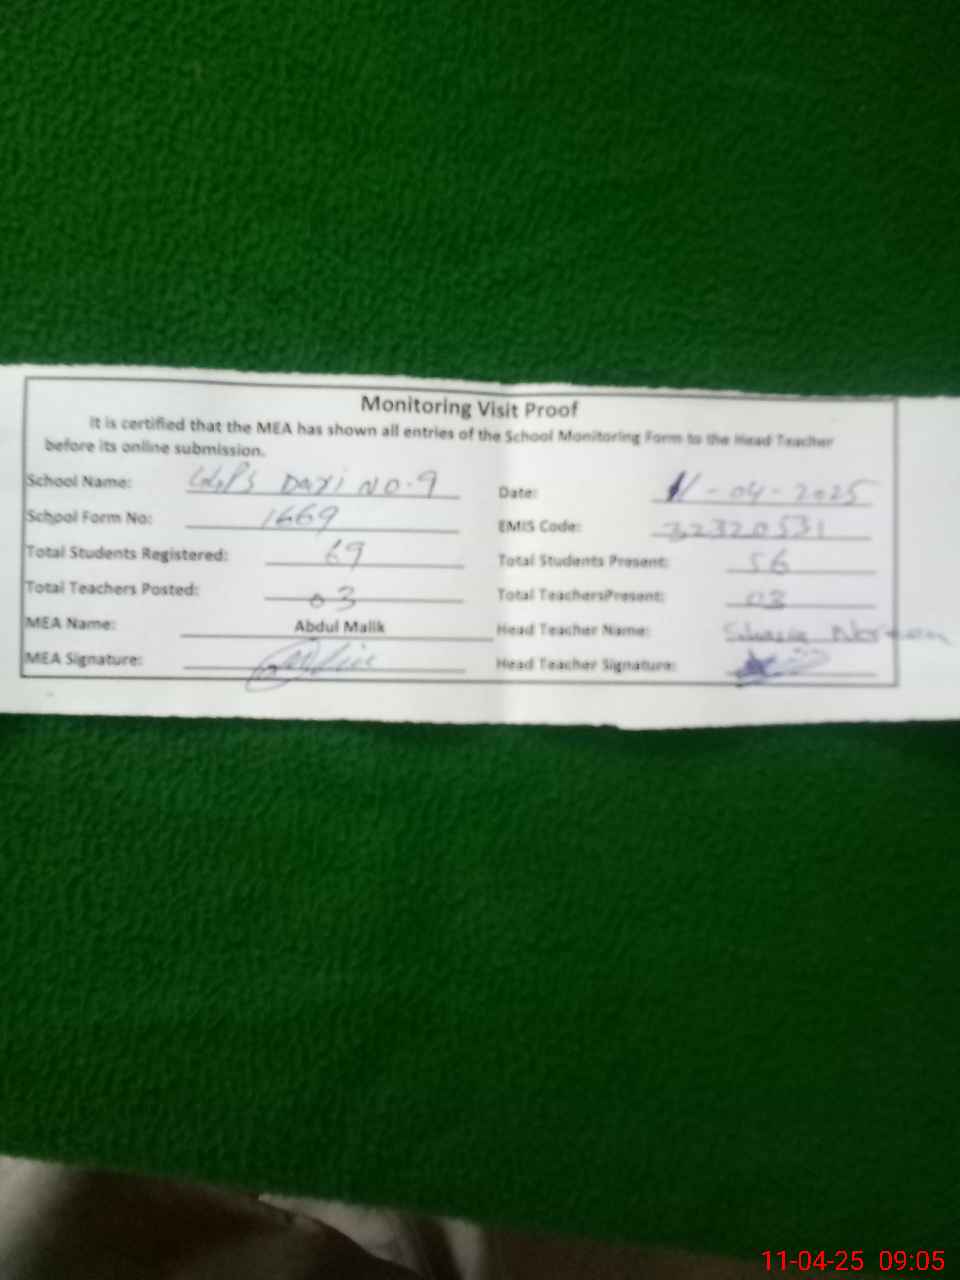 Monitoring Visit Proof
It is certified that the MEA has shown all entries of the School Monitoring Form to the Head Teacher
before its online submission.
School Name: DAXI NO. 9 Date: 11-04-2025
School Form No: 1669 EMIS Code: 32320531
Total Students Registered: 69 Total Students Present: 56
Total Teachers Posted: 03 Total TeachersPresent: 03
MEA Name: Abdul Malik Head Teacher Name:
MEA Signature: Head Teacher Signature:
11-04-25 09:05